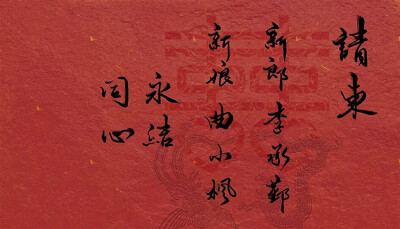 請柬
新郎李承鄞
新娘曲小楓
永結
同心